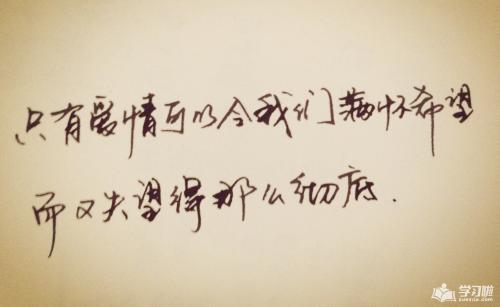 只有爱情可以令我们满怀希望
而又失望得那么彻底.
学习啦
xuexila.com